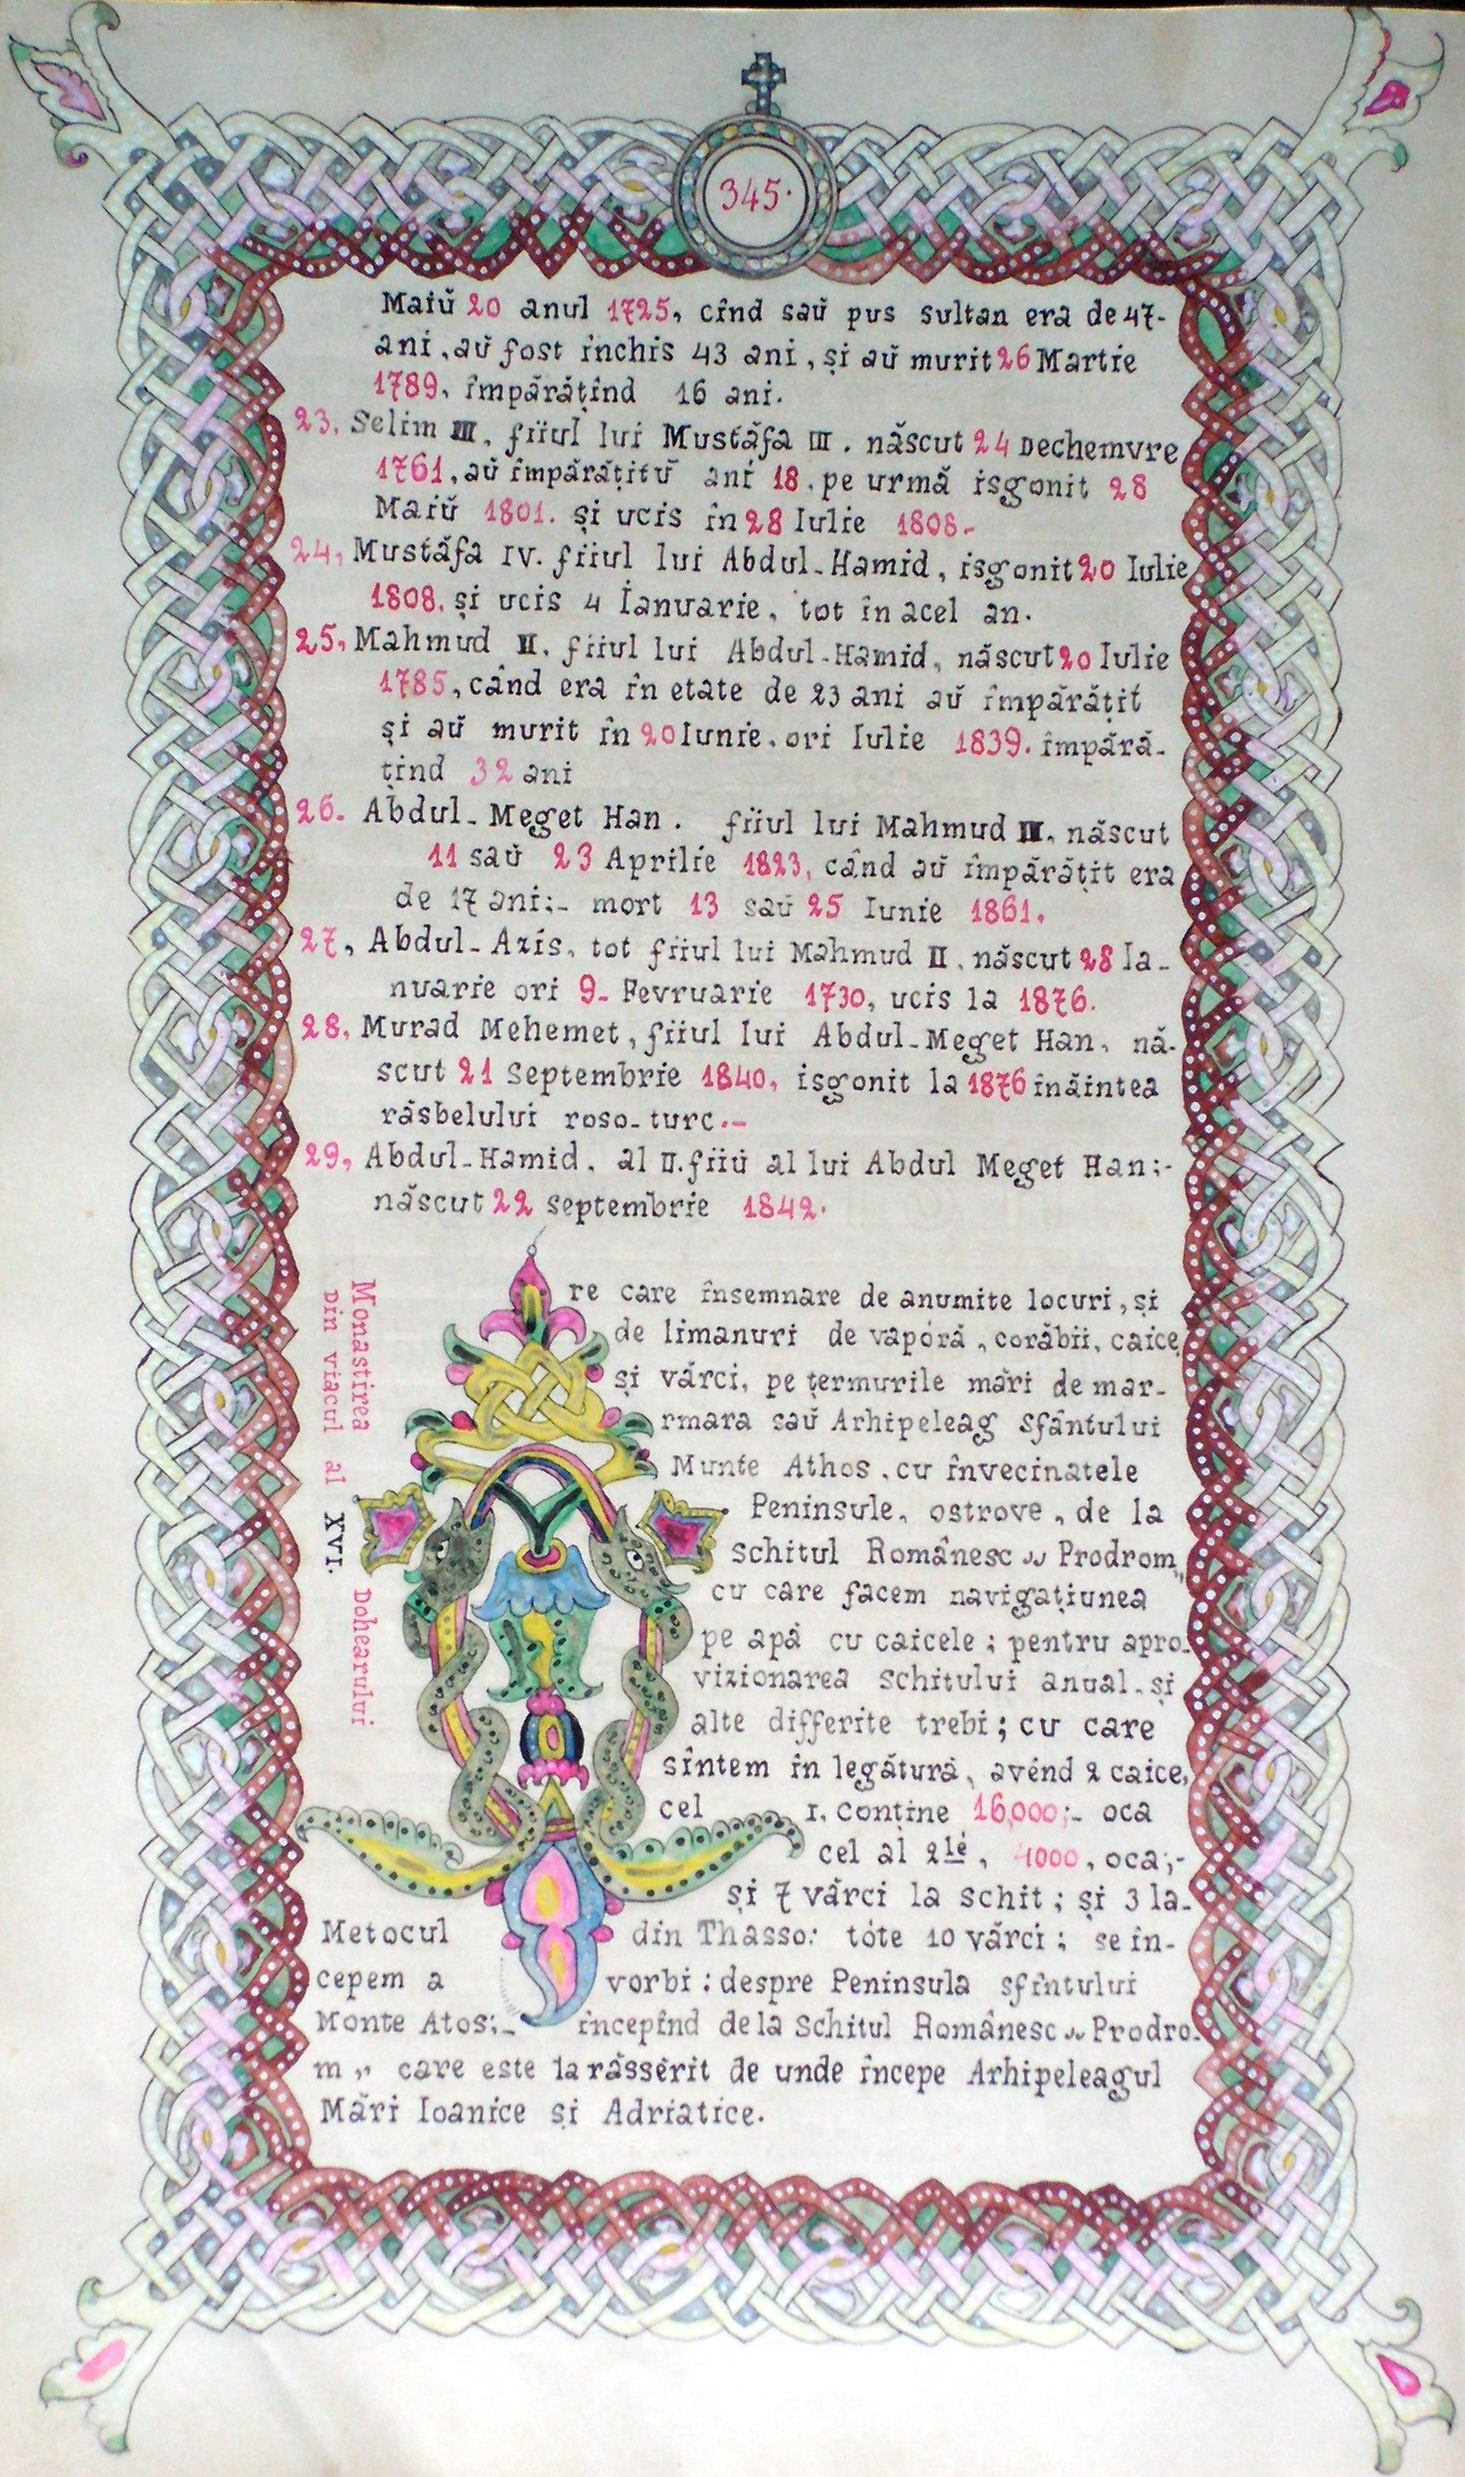 345.
Maiŭ 20 anul 1725, cînd saŭ pus sultan era de 47-
ani, aŭ fost închis 43 ani, și aŭ murit 26 Martie
1789, împărățind 16 ani.
23, Selim III, fiiul lui Mustáfa III. născut 24 Dechemvre
1761, aŭ împărățitŭ ani 18, pe urmă isgonit 28
Maiŭ 1801. și ucis în 28 Iulie 1808-
24, Mustáfa IV. fiiul lui Abdul-Hamid, isgonit 20 Iulie
1808, și ucis 4 Ianuarie, tot în acel an.
25, Mahmud II, fiiul lui Abdul-Hamid, născut 20 Iulie
1785, când era în etate de 23 ani aŭ împărățit
și aŭ murit în 20 Iunie, ori Iulie 1839. împără-
țind 32 ani
26. Abdul-Meget Han. fiiul lui Mahmud II, născut
11 saŭ 23 Aprilie 1823, când aŭ împărățit era
de 17 ani;- mort 13 saŭ 25 Iunie 1861.
27, Abdul-Azis, tot fiiul lui Mahmud II, născut 28 Ia-
nuarie ori 9- Fevruarie 1730, ucis la 1876.
28, Murad Mehemet, fiiul lui Abdul-Meget Han, nă-
scut 21 Septembrie 1840, isgonit la 1876 înăintea
răsbelului roso-turc.-
29, Abdul-Hamid, al II. fiiŭ al lui Abdul Meget Han;-
născut 22 septembrie 1842.
re care însemnare de anumite locuri, și
de limanuri de vapóră, corăbii, caice
și vărci, pe țermurile mări de mar-
rmara saŭ Arhipeleag sfântului
Munte Athos, cu învecinatele
Peninsule, ostrove, de la
schitul Românesc „ Prodrom„
cu care facem navigațiunea
pe apă cu caicele; pentru apro-
vizionarea schitului anual, și
alte differite trebi; cu care
sîntem în legătură, avênd 2 caice,
cel 1, conține 16,000;- oca
cel al 2lé, 4000, oca;-
și 7 vărci la schit; și 3 la-
Metocul din Thasso: tóte 10 vărci; se în-
cepem a vorbi: despre Peninsula sfîntului
Monte Atos;- începînd de la Schitul Românesc „ Prodro-
m „ care este la răssérit de unde începe Arhipeleagul
Mări Ioanice și Adriatice.
Monastirea Dohearului
Din viacul al XVI.